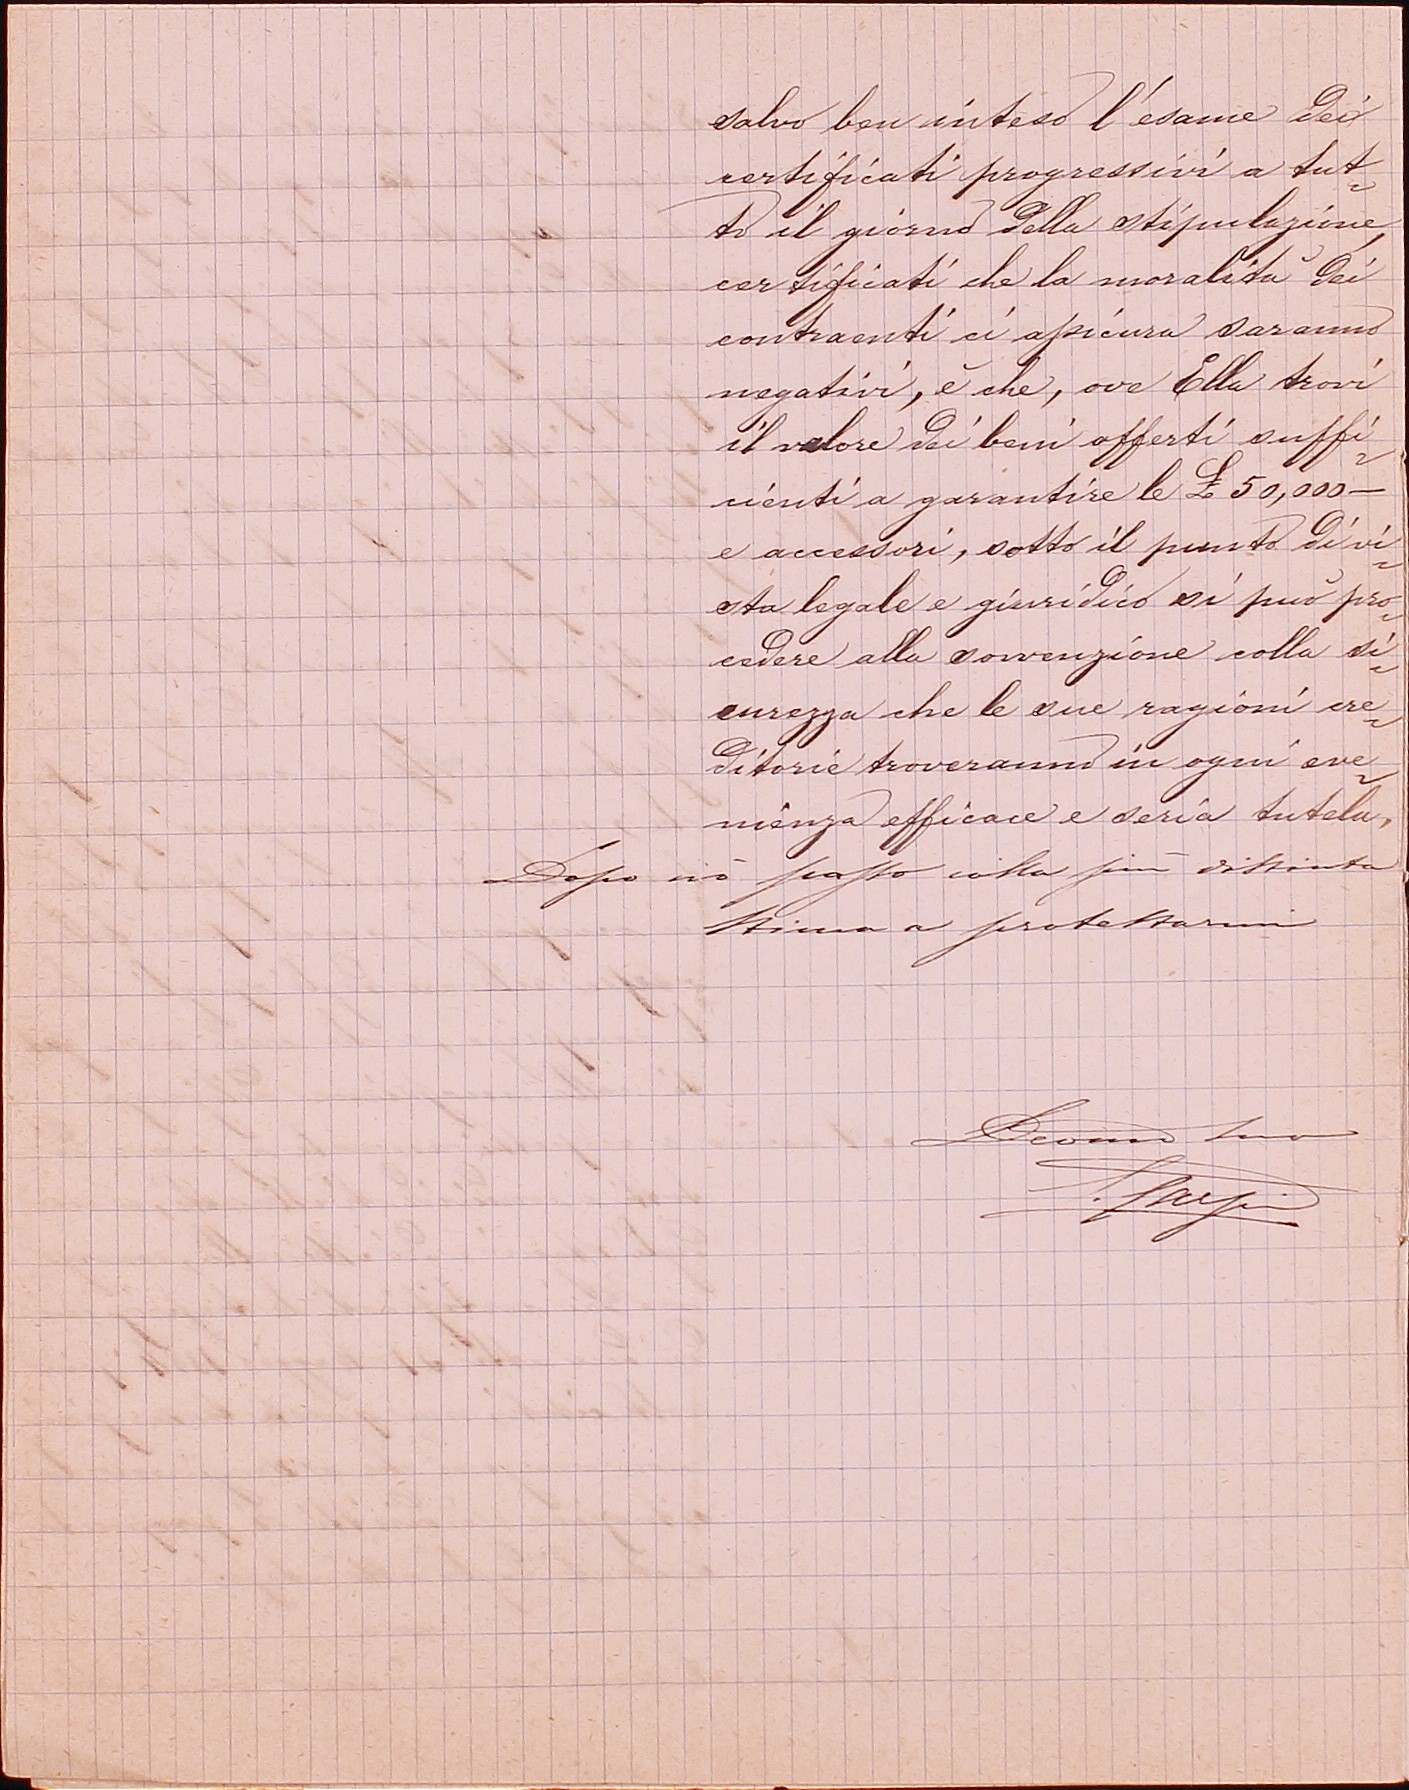 salvo ben inteso l'esame dei
certificati progressivi a tut-
to il giorno della stipulazione,
certificati che la moralità dei
contraenti ci assicura saranno
negativi, è che, ove Ella trovi
il valore dei beni offerti suffi-
cienti a garantire le £ 50,000—
e accessori, sotto il punto di vi-
sta legale e giuridico si può pro-
cedere alla sovvenzione colla si-
curezza che le sue ragioni cre-
ditorie troveranno in ogni eve-
nienza efficace e seria tutela,
Dopo ciò passo colla più distinta
stima a protestarmi
suo